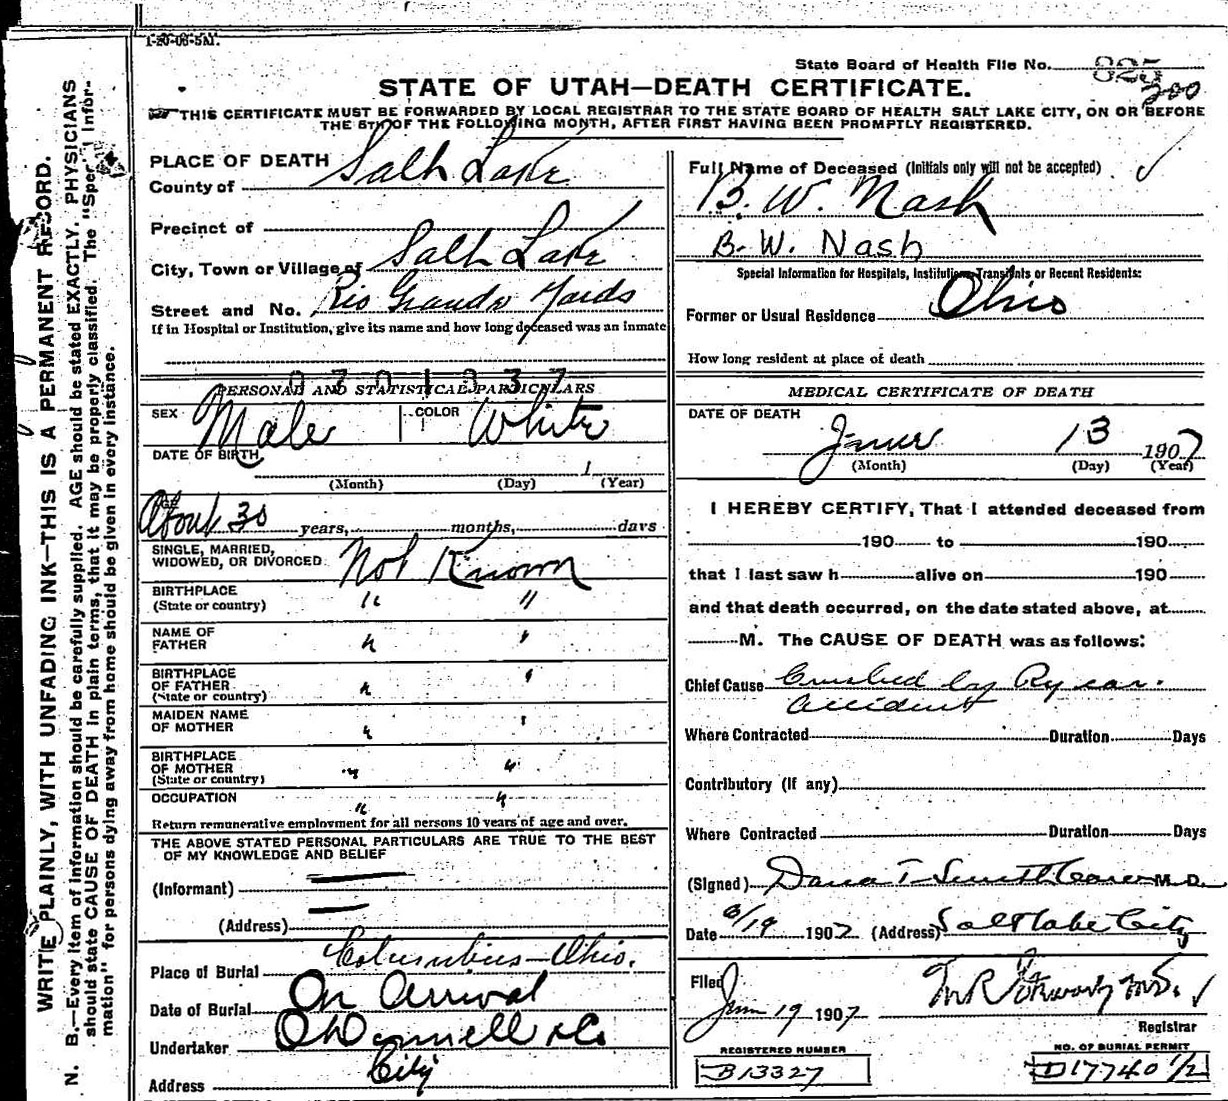 1-20-06-5M.
State Board of Health File No. 825
200
STATE OF UTAH—DEATH CERTIFICATE.
THIS CERTIFICATE MUST BE FORWARDED BY LOCAL REGISTRAR TO THE STATE BOARD OF HEALTH SALT LAKE CITY, ON OR BEFORE
THE 5TH OF THE FOLLOWING MONTH, AFTER FIRST HAVING BEEN PROMPTLY REGISTERED.
WRITE PLAINLY, WITH UNFADING INK—THIS IS A PERMANENT RECORD.
N. B.—Every item of information should be carefully supplied. AGE should be stated EXACTLY. PHYSICIANS
should state CAUSE OF DEATH in plain terms, that it may be properly classified. The "Special Infor-
mation" for persons dying away from home should be given in every instance.
PLACE OF DEATH
County of Salt Lake
Precinct of
City, Town or Village of Salt Lake
Street and No. Rio Grande Yards
If in Hospital or Institution, give its name and how long deceased was an inmate
0 7 0 1 3 3 7
PERSONAL AND STATISTICAL PARTICULARS
SEX Male COLOR White
DATE OF BIRTH
(Month) (Day) 1 (Year)
AGE About 30 years, months, days
SINGLE, MARRIED,
WIDOWED, OR DIVORCED Not Known
BIRTHPLACE
(State or country) " "
NAME OF
FATHER " "
BIRTHPLACE
OF FATHER
(State or country) " "
MAIDEN NAME
OF MOTHER " "
BIRTHPLACE
OF MOTHER
(State or country) " "
OCCUPATION " "
Return remunerative employment for all persons 10 years of age and over.
THE ABOVE STATED PERSONAL PARTICULARS ARE TRUE TO THE BEST
OF MY KNOWLEDGE AND BELIEF
(Informant)
(Address)
Place of Burial Columbus—Ohio.
Date of Burial On Arrival
Undertaker O'Donnell & Co
Address City
Full Name of Deceased (Initials only will not be accepted)
B. W. Nash
B. W. Nash
Special Information for Hospitals, Institutions, Transients or Recent Residents:
Former or Usual Residence Ohio
How long resident at place of death
MEDICAL CERTIFICATE OF DEATH
DATE OF DEATH
June 13 1907
(Month) (Day) (Year)
I HEREBY CERTIFY, That I attended deceased from
190 to 190
that I last saw h alive on 190
and that death occurred, on the date stated above, at
M. The CAUSE OF DEATH was as follows:
Chief Cause Crushed by Ry car.
accident
Where Contracted Duration Days
Contributory (If any)
Where Contracted Duration Days
(Signed) Dana T Smith M. D.
Date 6/19 1907 (Address) Salt Lake City
Filed
June 19 1907 M.D.
Registrar
REGISTERED NUMBER
B13327
NO. OF BURIAL PERMIT
D17740 1/2